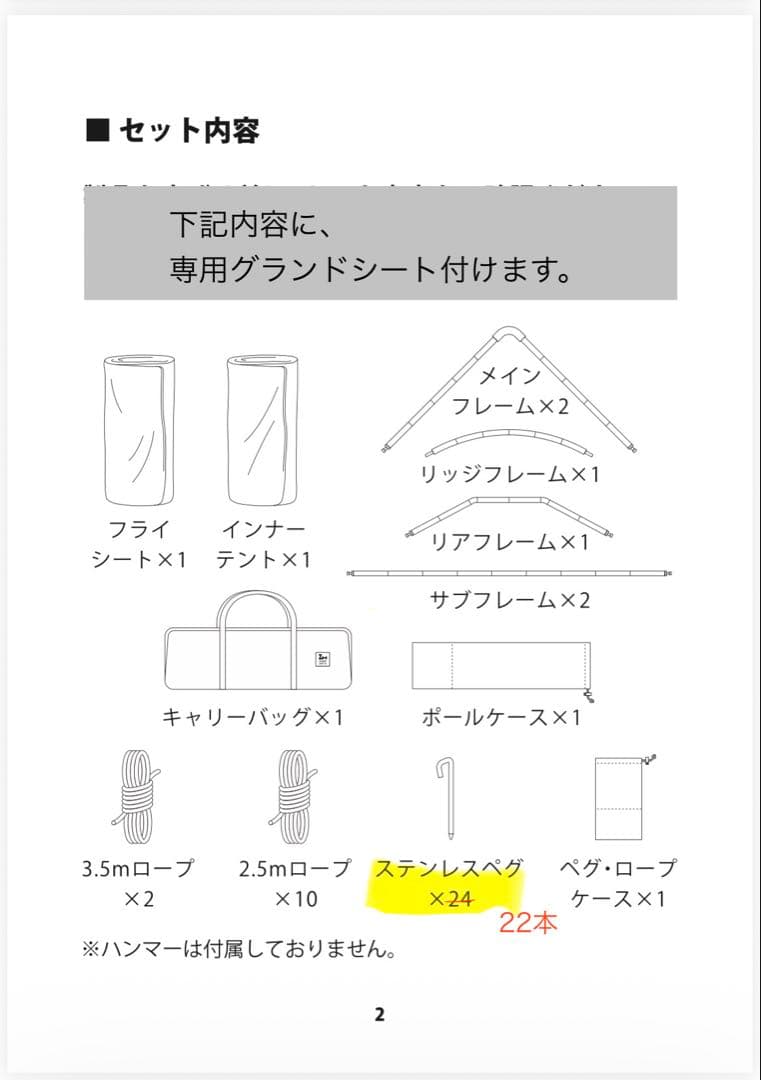 ■ セット内容
下記内容に、
専用グランドシート付けます。
メイン
フレーム×2
リッジフレーム×1
フライ
シート×1
インナー
テント×1
リアフレーム×1
サブフレーム×2
キャリーバッグ×1
ポールケース×1
3.5mロープ
×2
2.5mロープ
×10
ステンレスペグ
×24
22本
ペグ・ロープ
ケース×1
※ハンマーは付属しておりません。
2